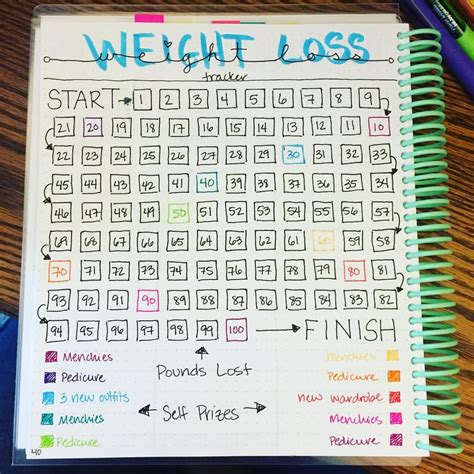 WEIGHT LOSS
weight loss
tracker
START → 1 2 3 4 5 6 7 8 9
21 20 19 18 17 16 15 14 13 12 11 10
22 23 24 25 26 27 28 29 30 31 32 33
45 44 43 42 41 40 39 38 37 36 35 34
46 47 48 49 50 51 52 53 54 55 56 57
69 68 67 66 65 64 63 62 61 60 59 58
70 71 72 73 74 75 76 77 78 79 80 81
93 92 91 90 89 88 87 86 85 84 83 82
94 95 96 97 98 99 100 → FINISH
Menchies
Pedicure
3 new outfits
Menchies
Pedicure
Pounds Lost
← Self Prizes →
Menchies
Pedicure
new wardrobe
Menchies
Pedicure
40